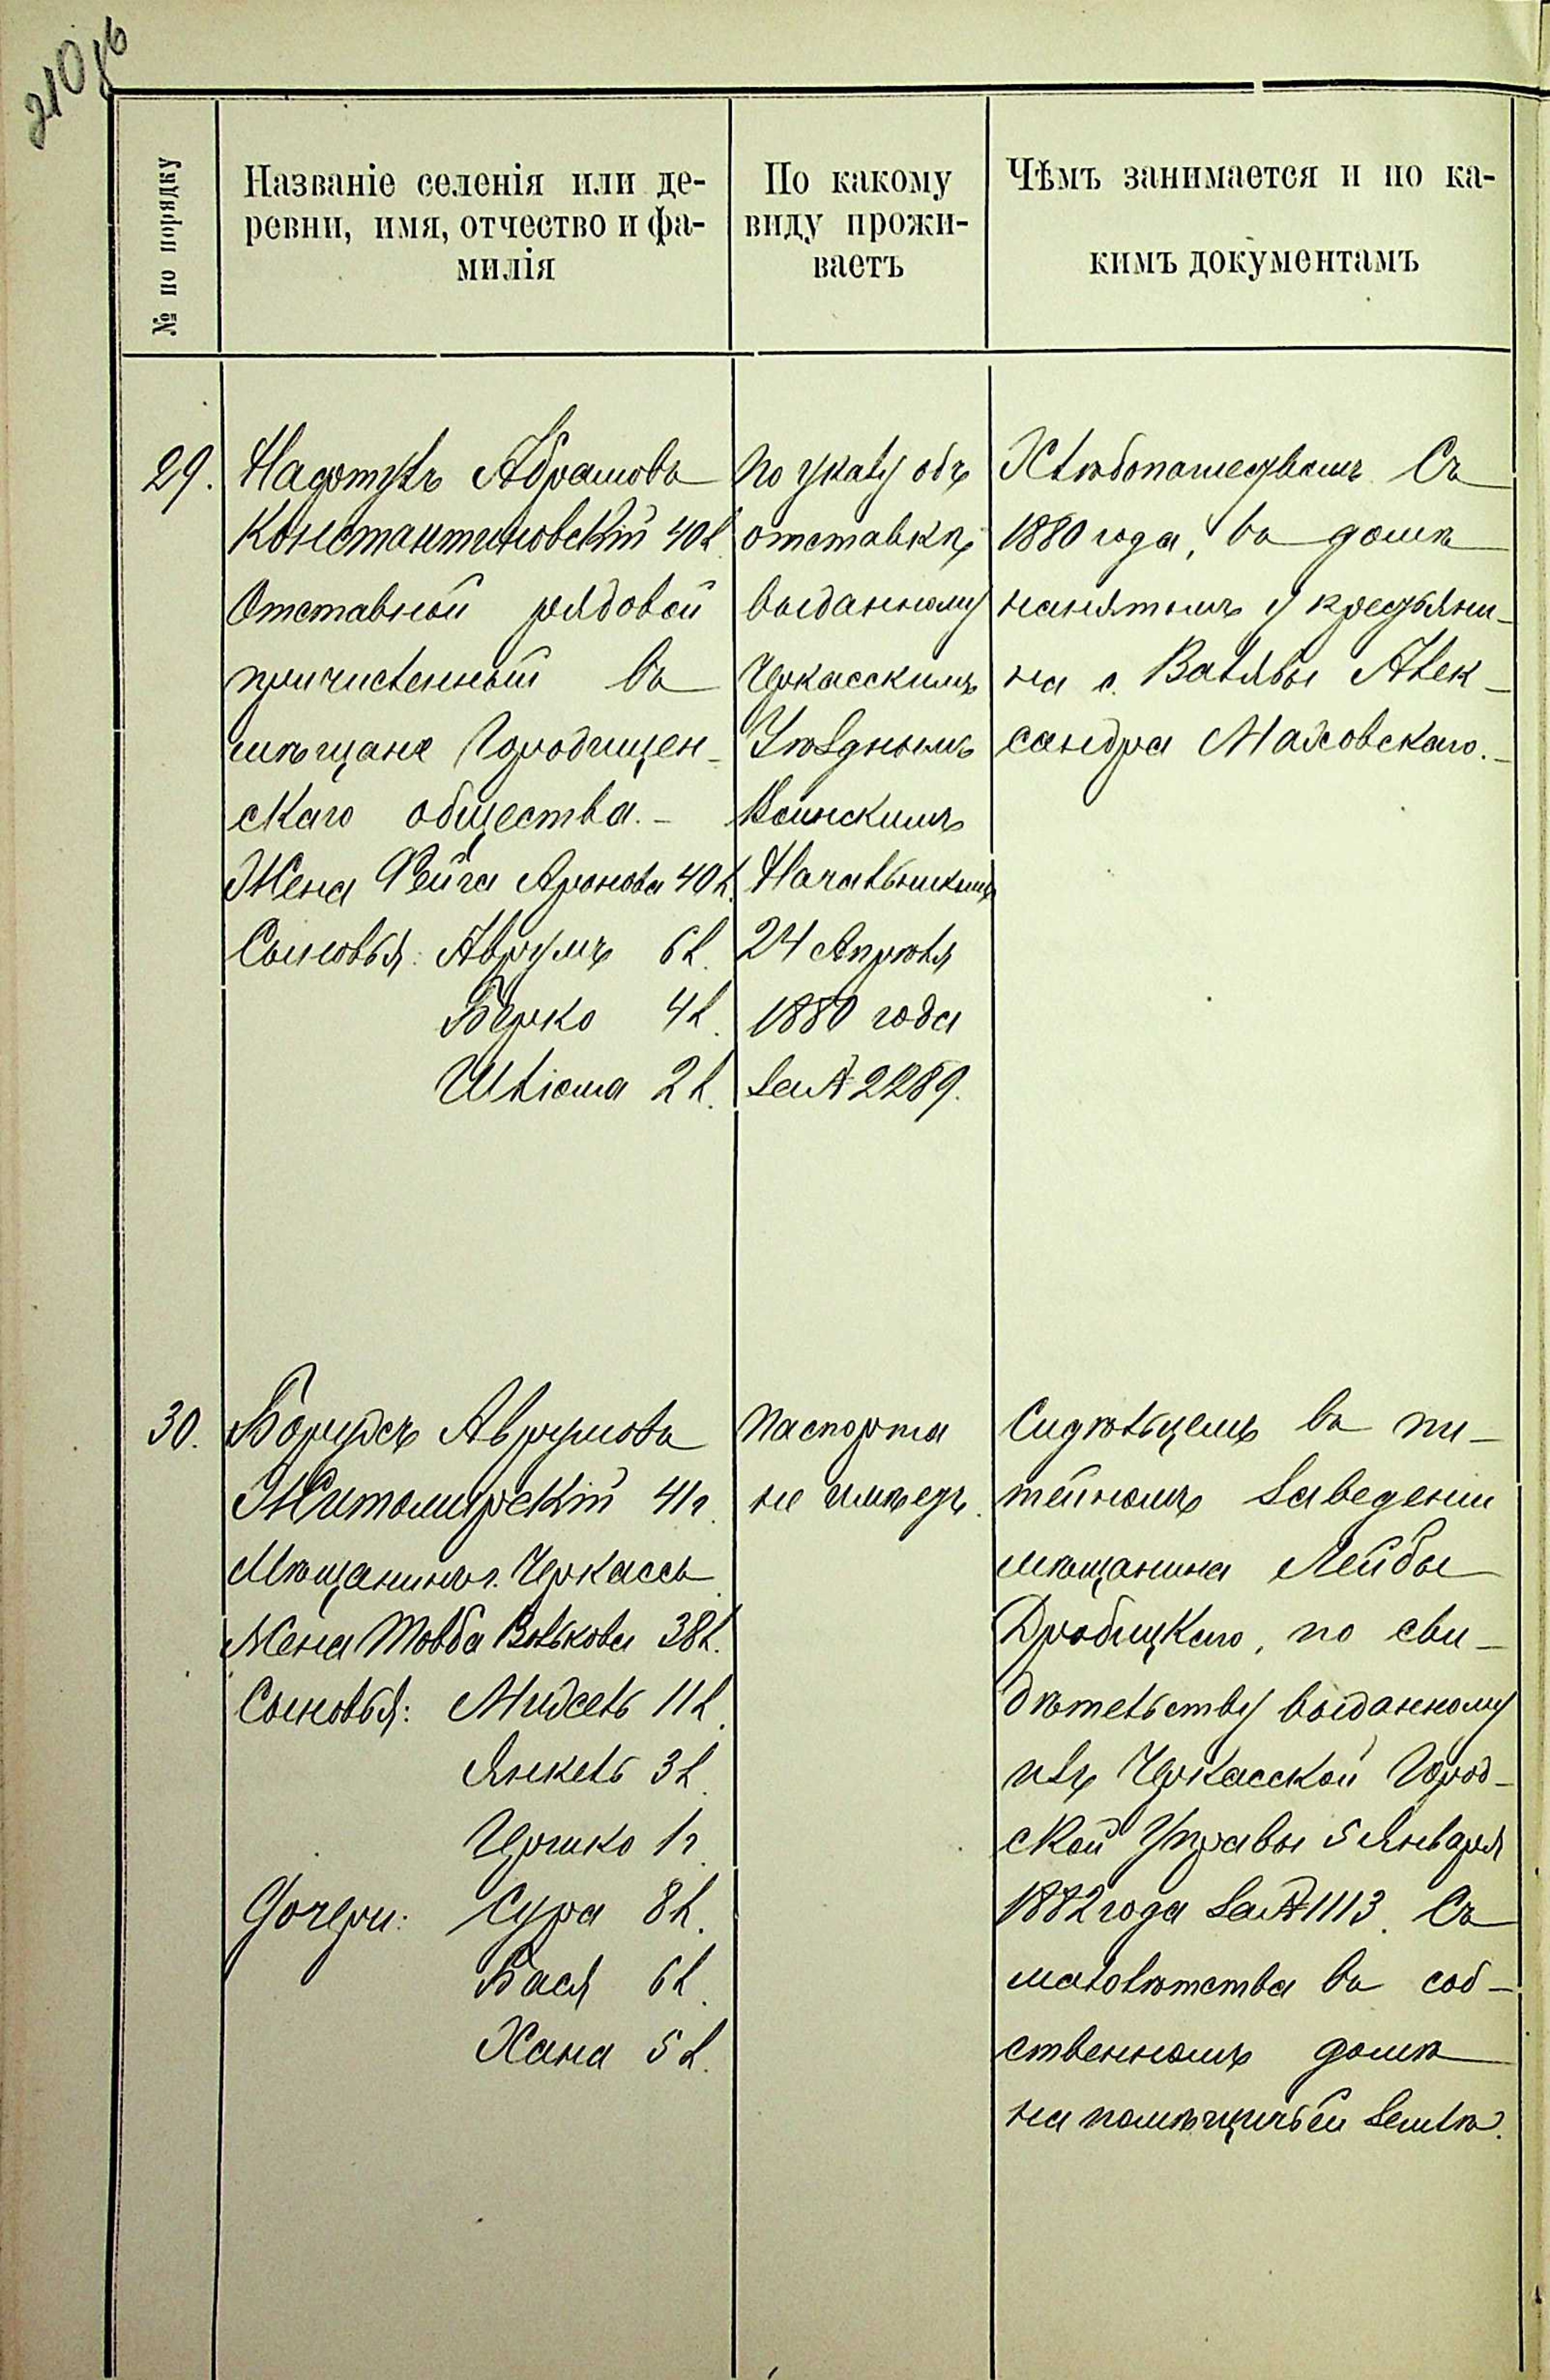 210 об
№ по порядку
Названіе селенія или де-
ревни, имя, отчество и фа-
милія
По какому
виду прожи-
ваетъ
Чѣмъ занимается и по ка-
кимъ документамъ
29.
Нафтулъ Абрамовъ
Константиновскій 40 л.
Отставной рядовой
причисленный въ
мѣщане Городищен-
скаго общества.-
Жена Фейга Аронова 40 л.
Сыновья: Аврумъ 6 л.
Берко 4 л.
Шлiома 2 л.
По указу объ
отставкѣ
выданному
Черкасскимъ
Уѣзднымъ
Воинскимъ
Начальникомъ
24 Апрѣля
1880 года
за № 2289.
Хлѣбопашествомъ. Съ
1880 года, въ домѣ
нанятомъ у крестьяни-
на с. Валявы Алек-
сандра Маховскаго.-
30.
Борухъ Аврумовъ
Житомирскій 41 г.
Мѣщанинъ г. Черкассъ
Жена Товба Волькова 38 л.
Сыновья: Михель 11 л.
Янкель 3 л.
Гершко 1 г.
Дочери: Сура 8 л.
Бася 6 л.
Хана 5 л.
Паспорта
не имѣетъ.
Сидѣльцемъ въ пи-
тейномъ заведеніи
мѣщанина Лейбы
Дробицкаго, по сви-
дѣтельству выданному
изъ Черкасской Город-
ской Управы 5 Января
1882 года за № 1113. Съ
малолѣтства въ соб-
ственномъ домѣ
на помѣщичьей землѣ.